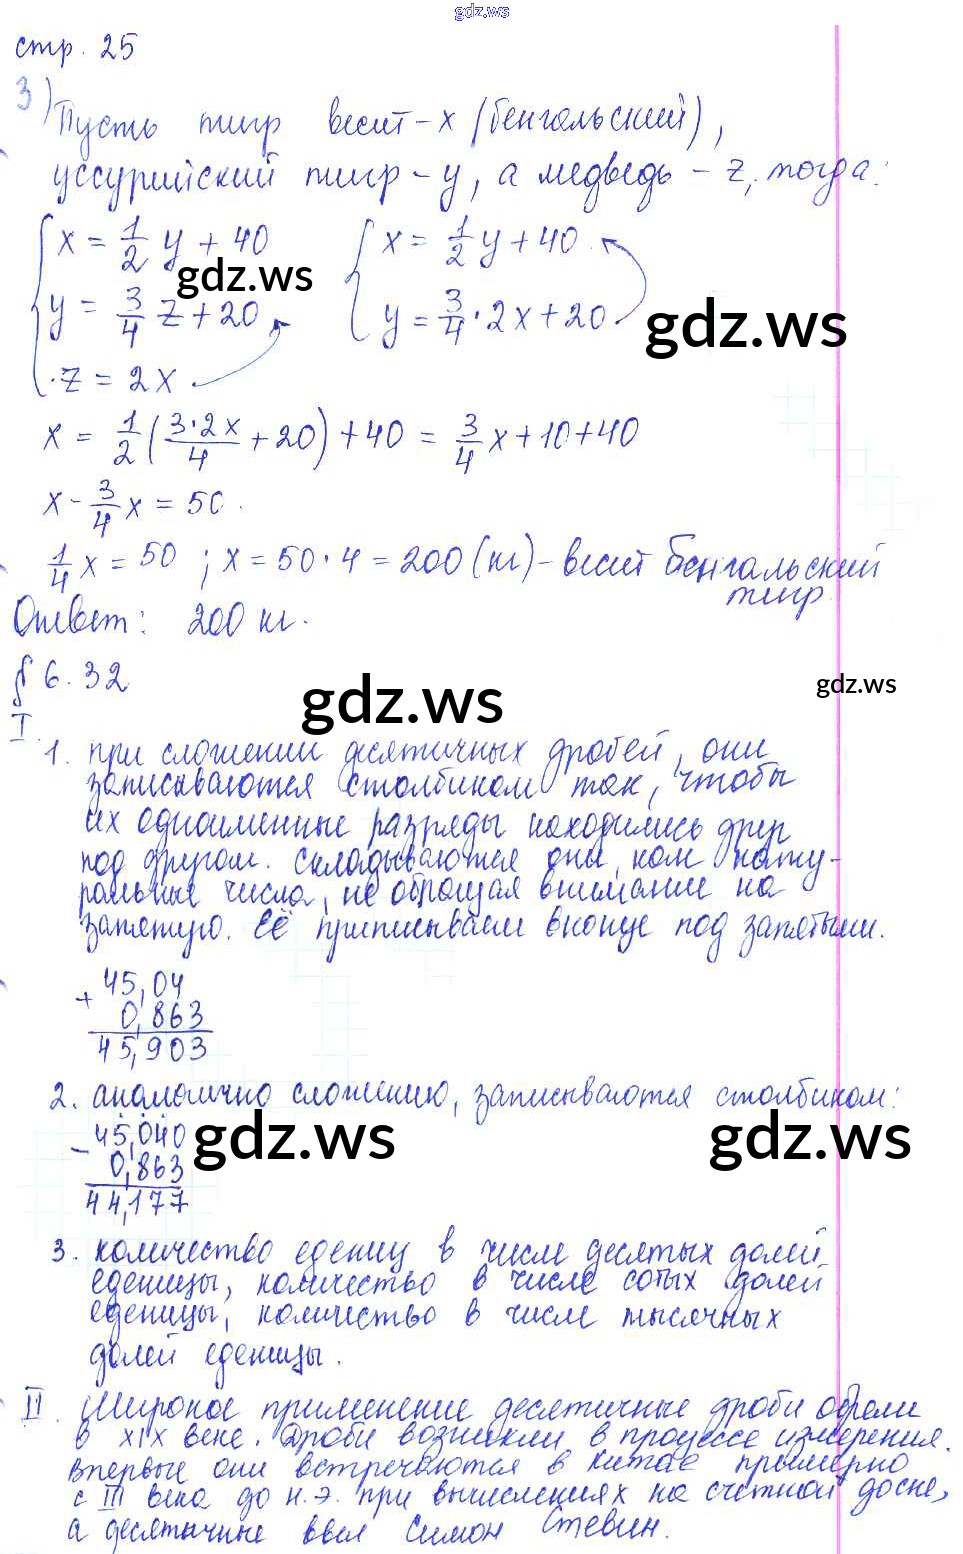 gdz.ws
стр. 25
3) Пусть тигр весит - x (бенгальский),
уссурийский тигр - y, а медведь - z, тогда:
x = 1/2 y + 40    x = 1/2 y + 40
gdz.ws
y = 3/4 z + 20    y = 3/4 · 2x + 20
gdz.ws
z = 2x
x = 1/2 (3·2x/4 + 20) + 40 = 3/4 x + 10 + 40
x - 3/4 x = 50.
1/4 x = 50 ; x = 50 · 4 = 200 (кг) - весит Бенгальский
тигр.
Ответ: 200 кг.
§ 6.32
gdz.ws
gdz.ws
I.
1. при сложении десятичных дробей, они
записываются столбиком так, чтобы
их одноименные разряды находились друг
под другом. Складываются они, как нату-
ральные числа, не обращая внимание на
запятую. Её приписываем вконце под запятыми.
45,04
+
0,863
45,903
2. аналогично сложению, записываются столбиком:
45,040
-
gdz.ws
gdz.ws
0,863
44,177
3. количество едениц в числе десятых долей
еденицы, количество в числе сотых долей
еденицы, количество в числе тысячных
долей еденицы.
II. Широкое применение десятичные дроби обрели
в XIX веке. Дроби возникли в процессе измерения.
Впервые они встречаются в Китае примерно
с III века до н.э. при вычислениях на счетной доске,
а десятичные ввел Симон Стевин.